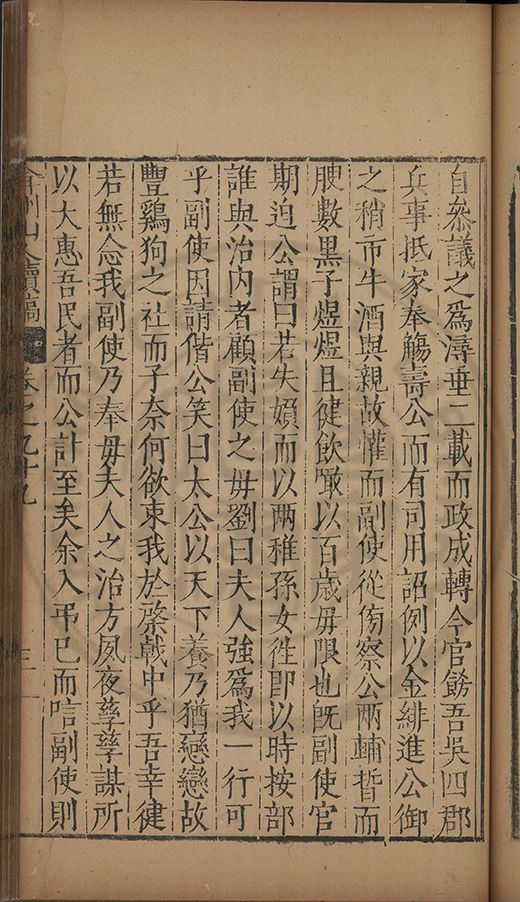 自叅議之爲潯垂二載而政成轉今官餝吾吳四郡
兵事抵家奉觴壽公而有司用詔例以金緋進公御
之稍市牛酒與親故懽而副使從傍察公兩輔晳而
腴數黒子煜煜且健飲噉以百歲毋限也旣副使官
期迫公謂曰若失嬪而以兩稚孫女徃卽以時按部
誰與治內者顧副使之毋劉曰夫人強爲我一行可
乎副使因請偕公笑曰太公以天下養乃猶戀戀故
豐鷄狗之社而子奈何欲束我於棨戟中乎吾幸健
若無念我副使乃奉毋夫人之治方夙夜孳孳謀所
以大惠吾民者而公計至矣余入弔已而唁副使則
弇州山人續稿 卷之九十九 三